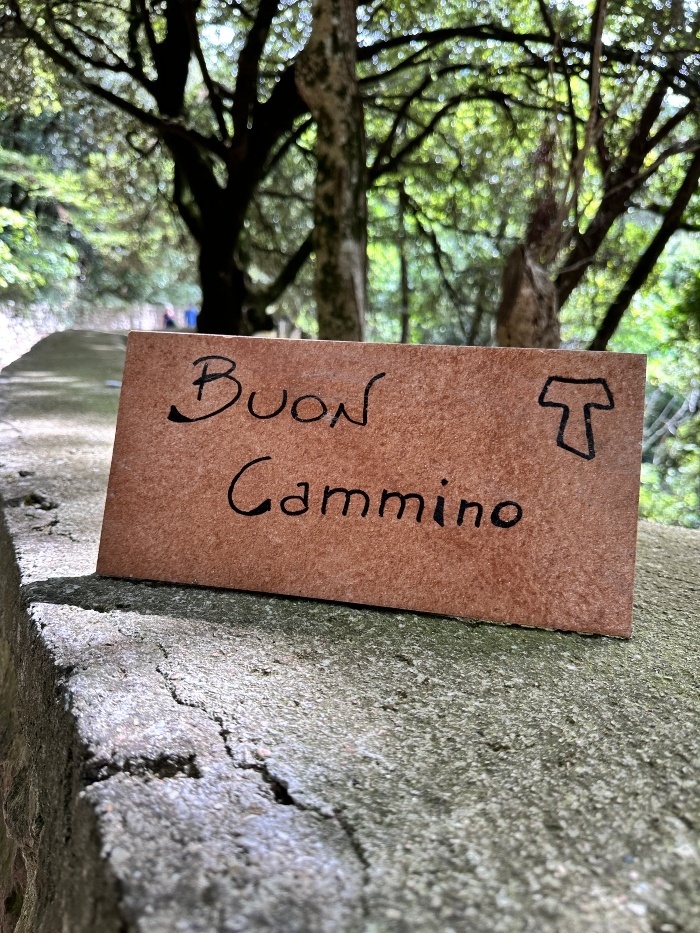 Buon
Cammino